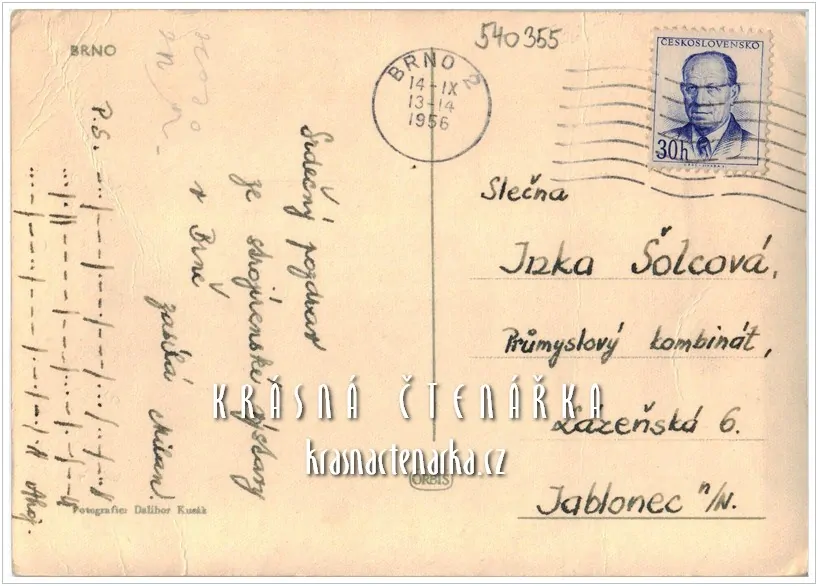 540355
BRNO
BRNO 2
14-IX
13-14
1956
ČESKOSLOVENSKO
30h
Srdečný pozdrav
ze strojírenské výstavy
v Brně
zasílá Milan.
P.S.
Ahoj.
Slečna
Inka Šolcová,
Průmyslový kombinát,
Lázeňská 6.
Jablonec n/N.
KRÁSNÁ ČTENÁŘKA
krasnactenarka.cz
ORBIS
Fotografie: Dalibor Kusák